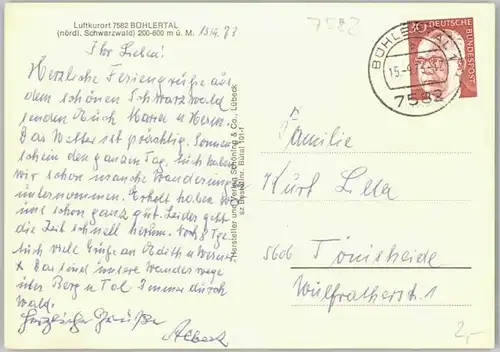 Luftkurort 7582 BÜHLERTAL
(nördl. Schwarzwald) 200-600 m ü. M.
7582
Ihr Lieben!
Herzliche Feriengrüße aus
dem schönen Schwarzwald
senden Euch
Das Wetter ist prächtig. Sonnen
schein den ganzen Tag. Auch haben
wir schon manche Wanderung
unternommen. Erholt haben wir
uns schon ganz gut. Leider geht
die Zeit schnell herum. Noch 8 Tage
Euch viele Grüße an Edith u. Werner
Das sind unsere Wanderwege
über Berg u. Tal Immer durch
Wald.
Herzliche Grüße
Hersteller und Verlag Schöning & Co., Lübeck
sz Bestellnr. Bütal 101-f
30
DEUTSCHE BUNDESPOST
BÜHLERTAL 1
7582
Familie
Kurt
5606 Tönisheide
Wülfratherstr. 1
2,-